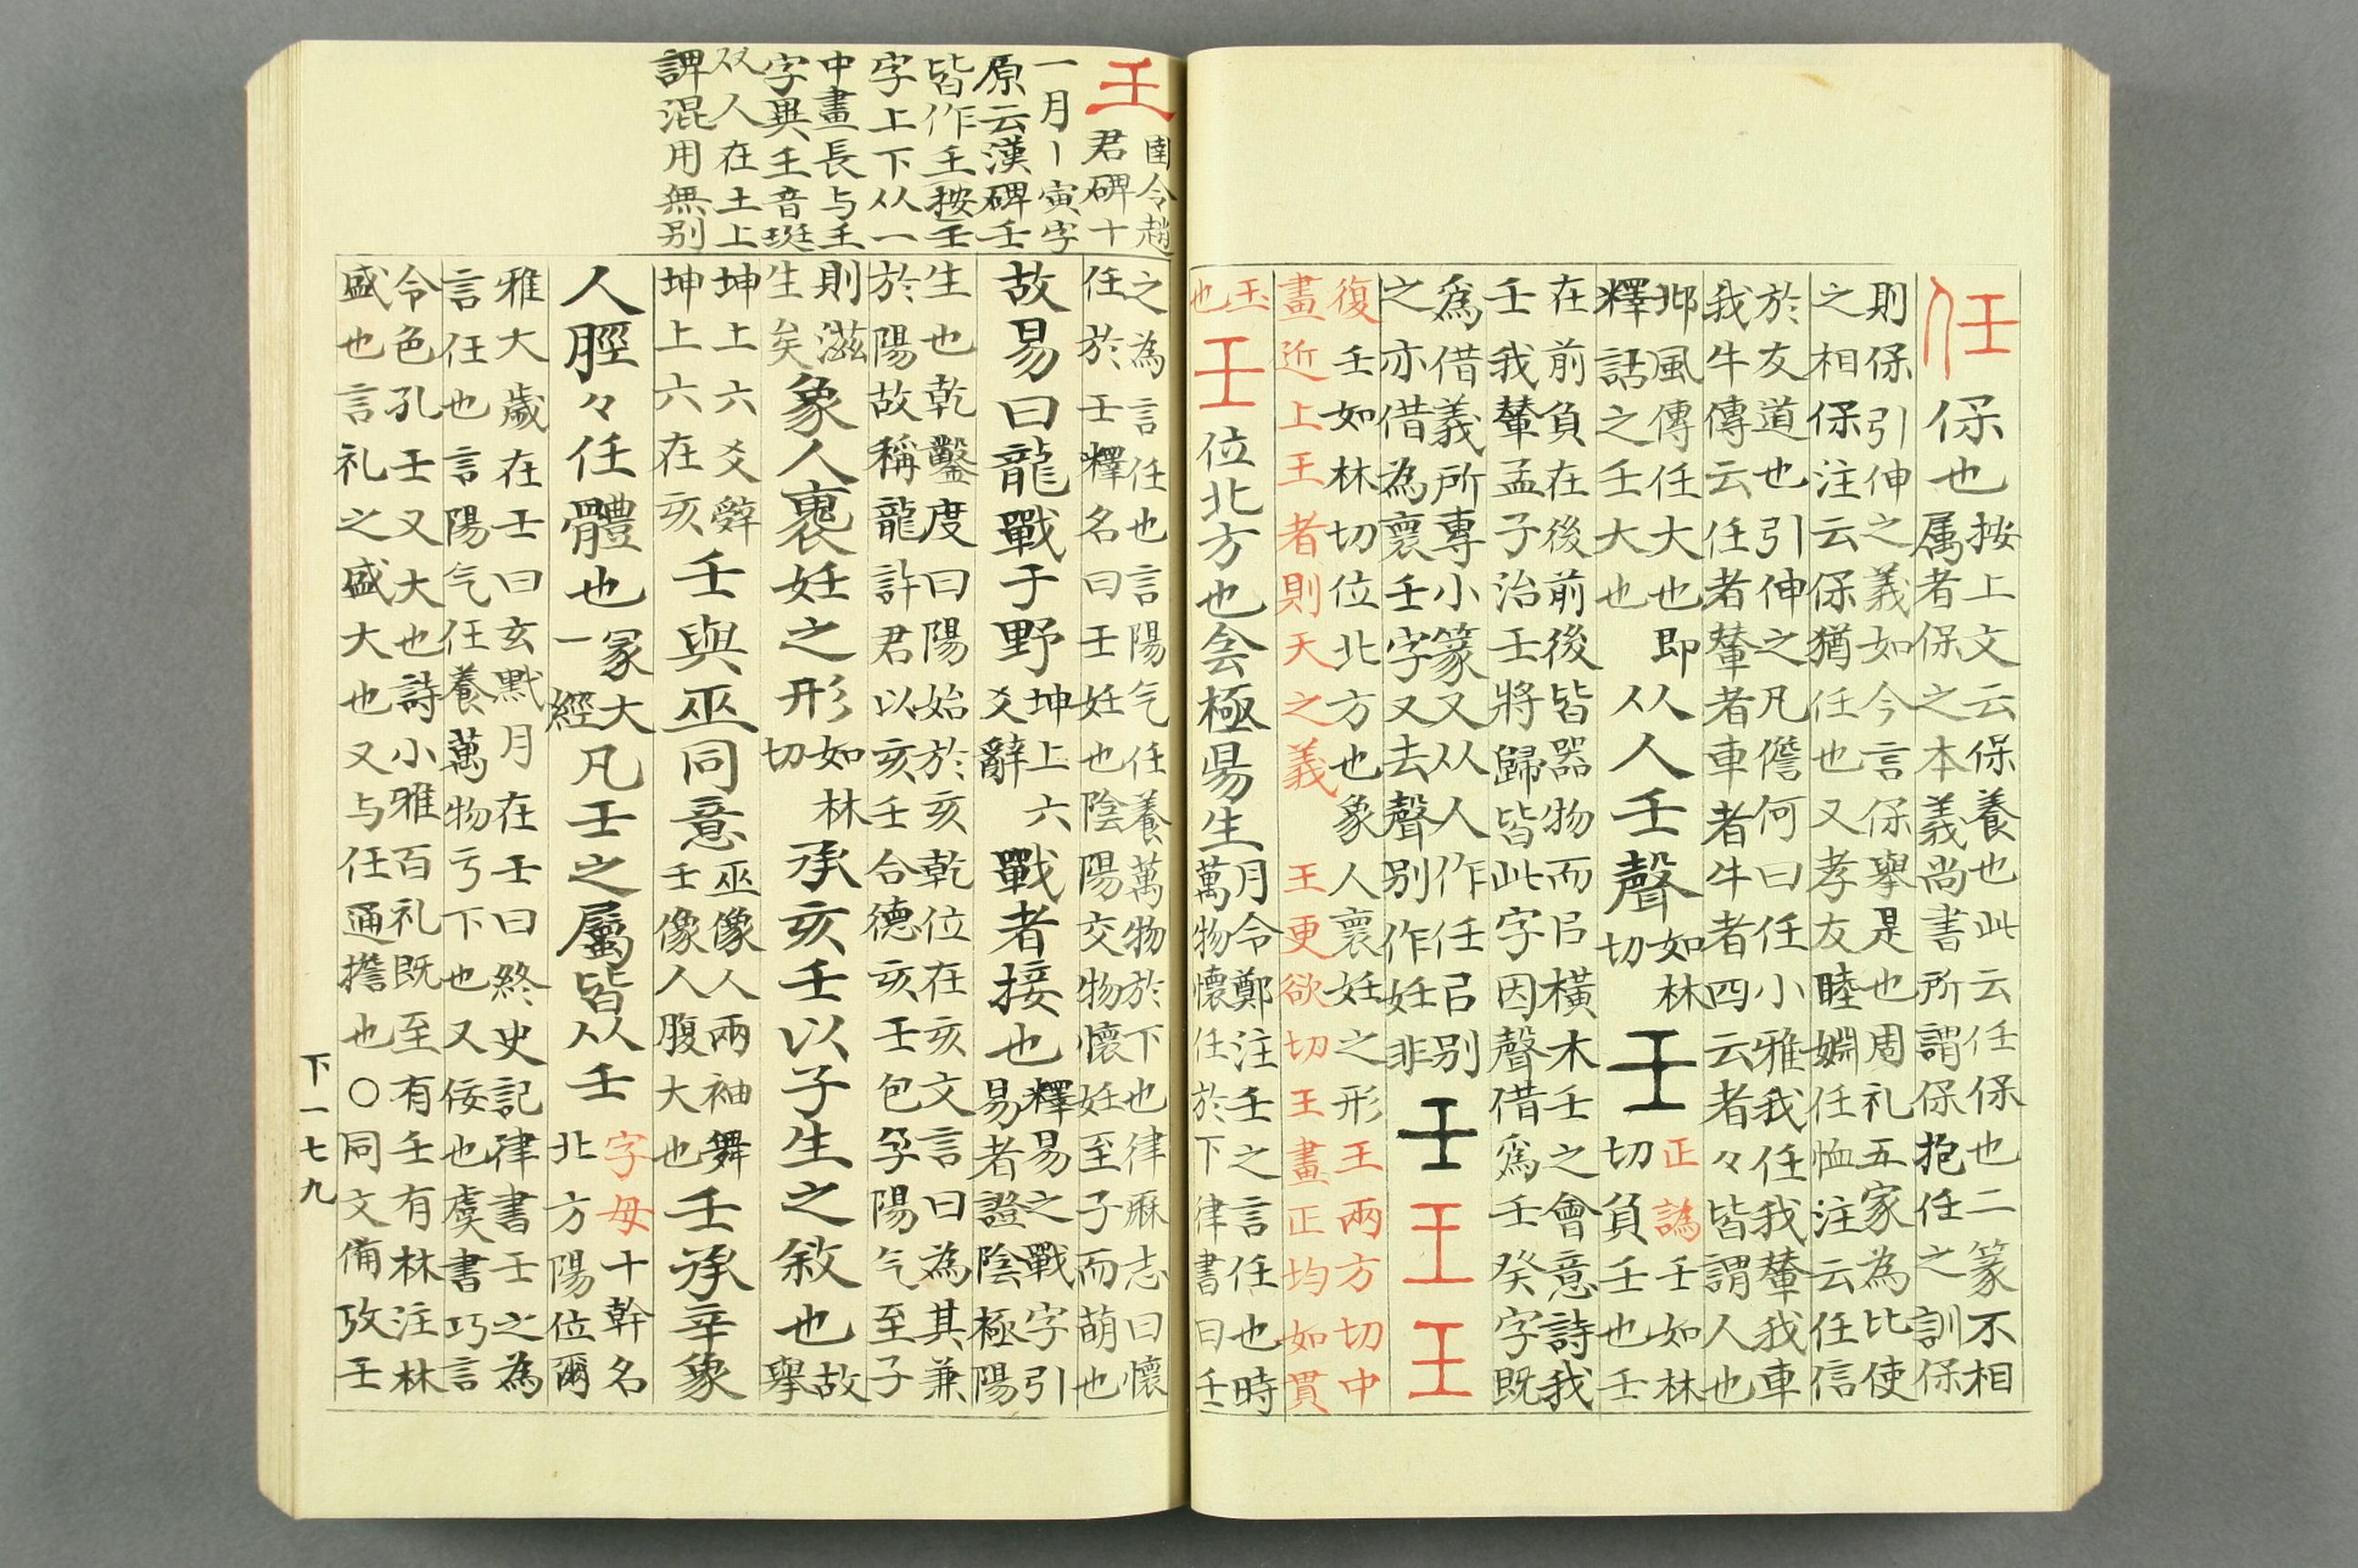 任保也
按上文云保養也此云任保也二篆不相
属者保之本義尚書所謂保抱任之訓保
則保引伸之義如今言保舉是也周礼五家為比使
之相保注云保猶任也又孝友睦婣任恤注云任信
於友道也引伸之凡儋何曰任小雅我任我輦我車
我牛傳云任者輦者車者牛者四云者々皆謂人也
邶風傳任大也即
釋詁之壬大也
从人壬聲
如林
切
壬
正譌壬如林
切負壬也壬
在前負在後前後皆器物而㠯橫木壬之會意詩我
壬我輦孟子治壬將歸皆此字因聲借爲壬癸字既
爲借義所專小篆又从人作任㠯别
之亦借為褱壬字又去聲别作妊非
壬王王
復壬如林切位北方也象人褱妊之形王兩方切中
畫近上王者則天之義王更欲切王畫正均如貫
玉
也
壬位北方也侌極昜生
月令鄭注壬之言任也時
萬物懷任於下律書曰壬
壬
圉令趙
君碑十
一月丨寅字
原云漢碑壬
皆作𡈼按壬
字上下从一
中畫長与𡈼
字異𡈼音珽
双人在土上
諀混用無别
之為言任也言陽气任養萬物於下也律厤志曰懷
任於壬釋名曰壬妊也陰陽交物懷妊至子而萌也
故易曰龍戰于野
坤上六
爻辭
戰者接也
釋易之戰字引
易者證陰極陽
生也乾鑿度曰陽始於亥乾位在亥文言曰為其兼
於陽故稱龍許君以亥壬合德亥壬包孕陽气至子
則滋
生矣
象人褢妊之形
如林
切
承亥壬以子生之敘也
故
舉
坤上六爻辤
坤上六在亥
壬與巫同意
巫像人兩袖舞
壬像人腹大也
壬承辛象
人脛々任體也
冡大
一經
凡壬之屬皆从壬
字母十幹名
北方陽位爾
雅大歲在壬曰玄黓月在壬曰終史記律書壬之為
言任也言陽气任養萬物亏下也又佞也虞書巧言
令色孔壬又大也詩小雅百礼既至有壬有林注林
盛也言礼之盛大也又与任通擔也○同文備攷壬
下一七九